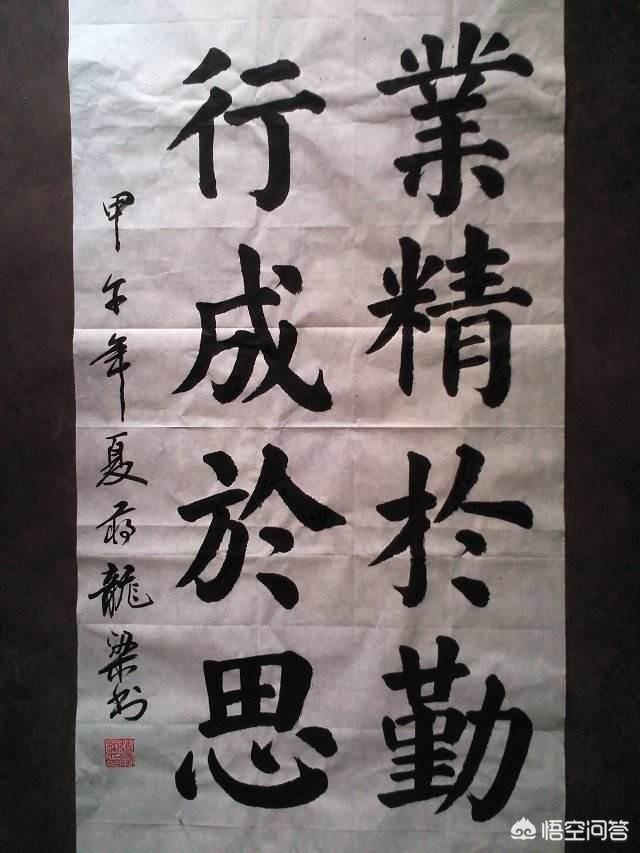 業精於勤
行成於思
甲午年夏蔣龍梁书
悟空问答